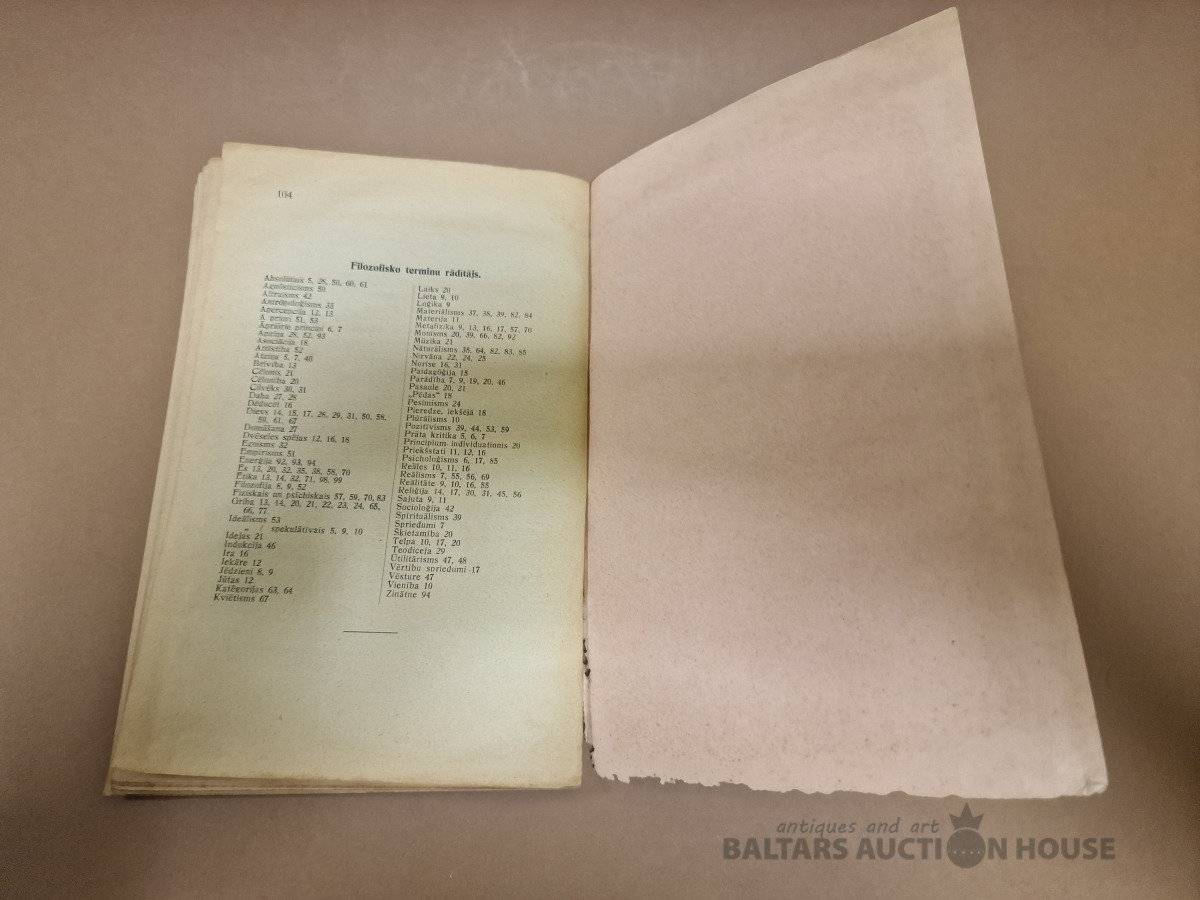 104
Filozofisko terminu rādītājs.
Absolūtais 5, 28, 50, 60, 61
Agnosticisms 50
Altruisms 42
Antropoloģisms 33
Apercepcija 12, 13
A priori 51, 53
Apriorie principi 6, 7
Apziņa 28, 82, 93
Asociācija 18
Attīstība 52
Atziņa 5, 7, 40
Brīvība 13
Cēlonis 21
Cēlonība 20
Cilvēks 30, 31
Daba 27, 28
Dēducēt 16
Dievs 14, 15, 17, 28, 29, 31, 50, 58,
59, 61, 67
Domāšana 27
Dvēseles spējas 12, 16, 18
Egoisms 32
Empirisms 51
Enerģija 92, 93, 94
Es 13, 20, 32, 35, 38, 58, 70
Ētika 13, 14, 32, 71, 98, 99
Filozofija 8, 9, 52
Fiziskais un psīchiskais 57, 59, 70, 83
Griba 13, 14, 20, 21, 22, 23, 24, 65,
66, 77
Ideālisms 53
„ spekulātīvais 5, 9, 10
Idejas 21
Indukcija 46
Ira 16
Iekāre 12
Jēdzieni 8, 9
Jūtas 12
Katēgorijas 63, 64
Kviētisms 67
Laiks 20
Lieta 9, 10
Loģika 9
Materiālisms 37, 38, 39, 82, 84
Materija 11
Metafizika 9, 13, 16, 17, 57, 70
Monisms 20, 39, 66, 82, 92
Mūzika 21
Nātūrālisms 35, 64, 82, 83, 85
Nirvāna 22, 24, 25
Norise 16, 31
Paidagōģija 15
Parādība 7, 9, 19, 20, 46
Pasaule 20, 21
„Pēdas“ 18
Pesimisms 24
Pieredze, iekšējā 18
Plūrālisms 10
Pozitīvisms 39, 44, 53, 59
Prāta kritika 5, 6, 7
Principium individuationis 20
Priekšstati 11, 12, 16
Psicholoģisms 6, 17, 85
Reāles 10, 11, 16
Reālisms 7, 55, 56, 69
Reālitāte 9, 10, 16, 55
Reliģija 14, 17, 30, 31, 45, 56
Sajuta 9, 11
Socioloģija 42
Spirituālisms 39
Spriedumi 7
Šķietamība 20
Telpa 10, 17, 20
Teodiceja 29
Ūtilitārisms 47, 48
Vērtību spriedumi 17
Vēsture 47
Vienība 10
Zinātne 94
antiques and art
BALTARS AUCTION HOUSE